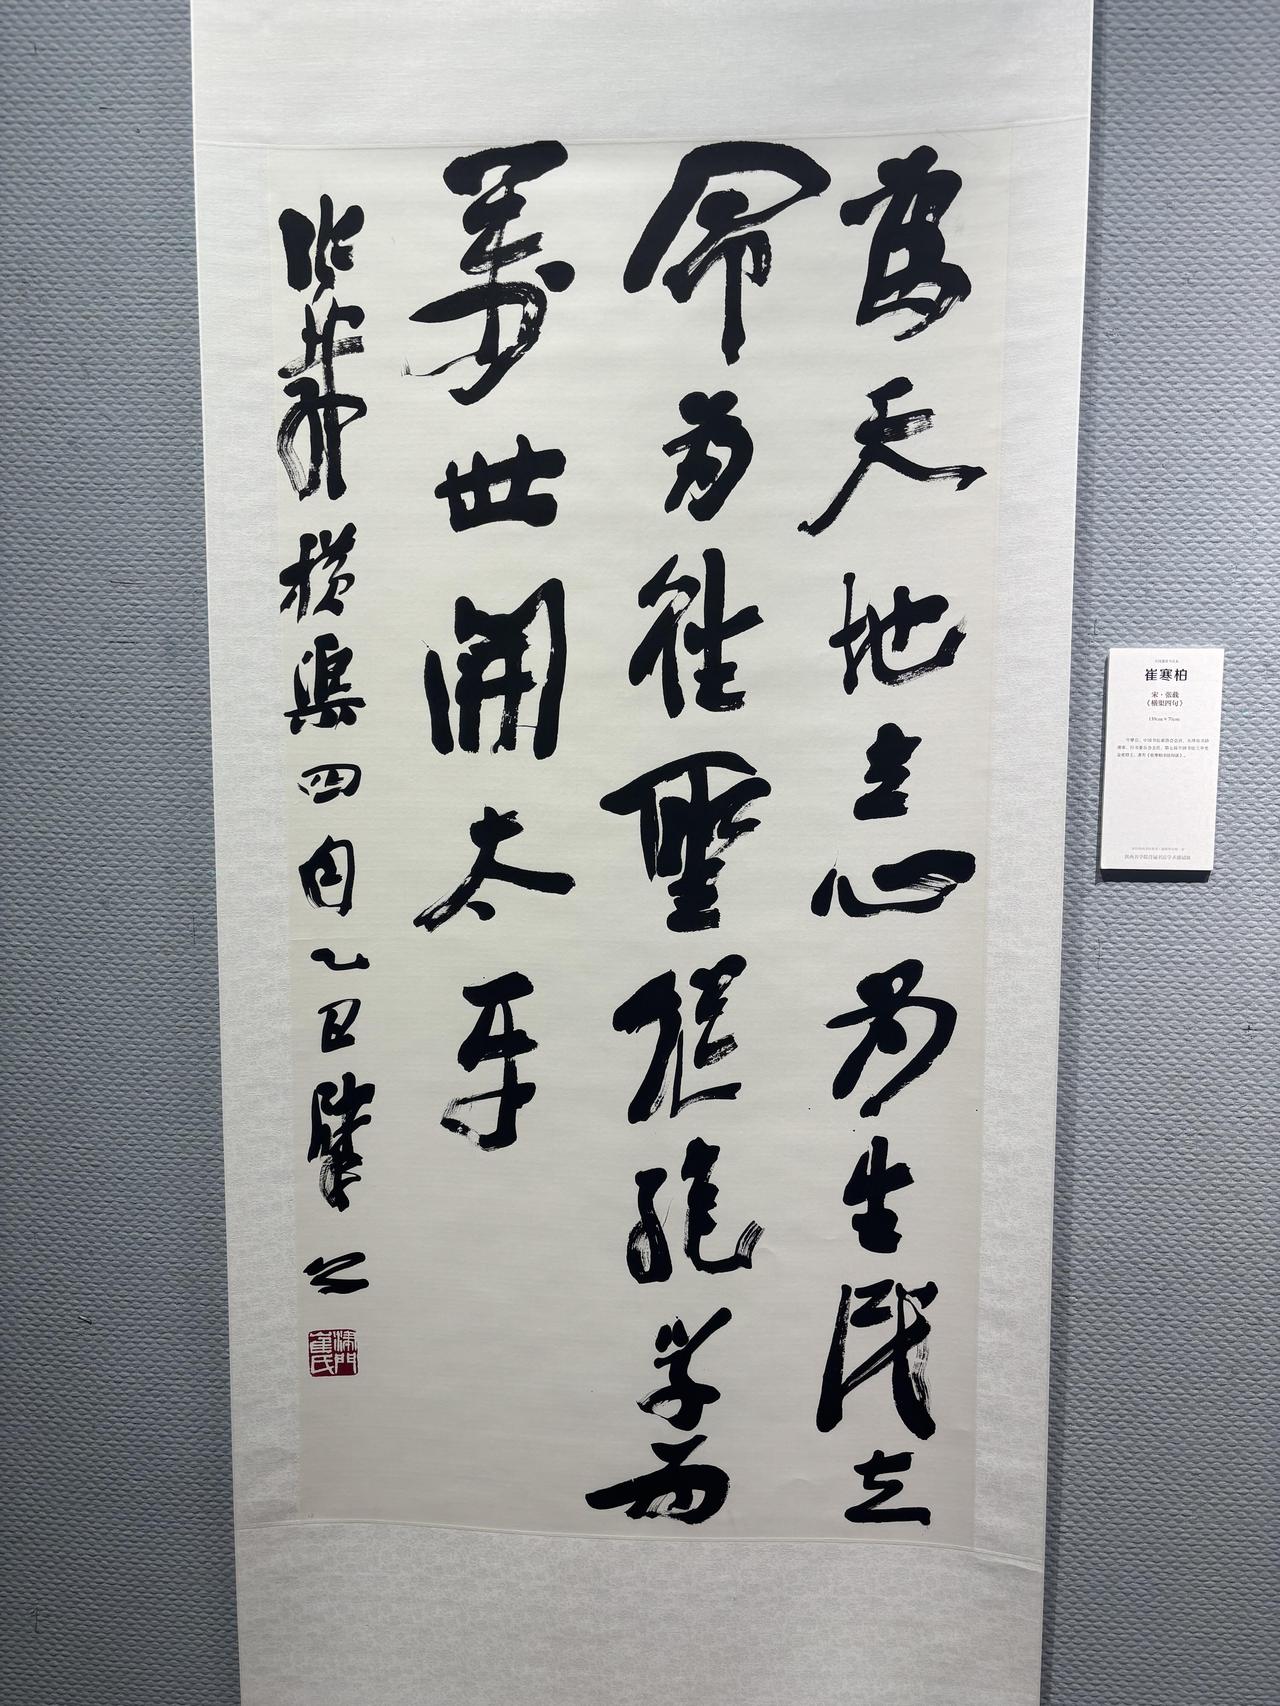 為天地立心為生民立
命為往聖繼絕學為
萬世開太平
張載橫渠四句乙巳肇公
津門崔氏
崔寒柏
宋·张载
《横渠四句》
138cm×70cm